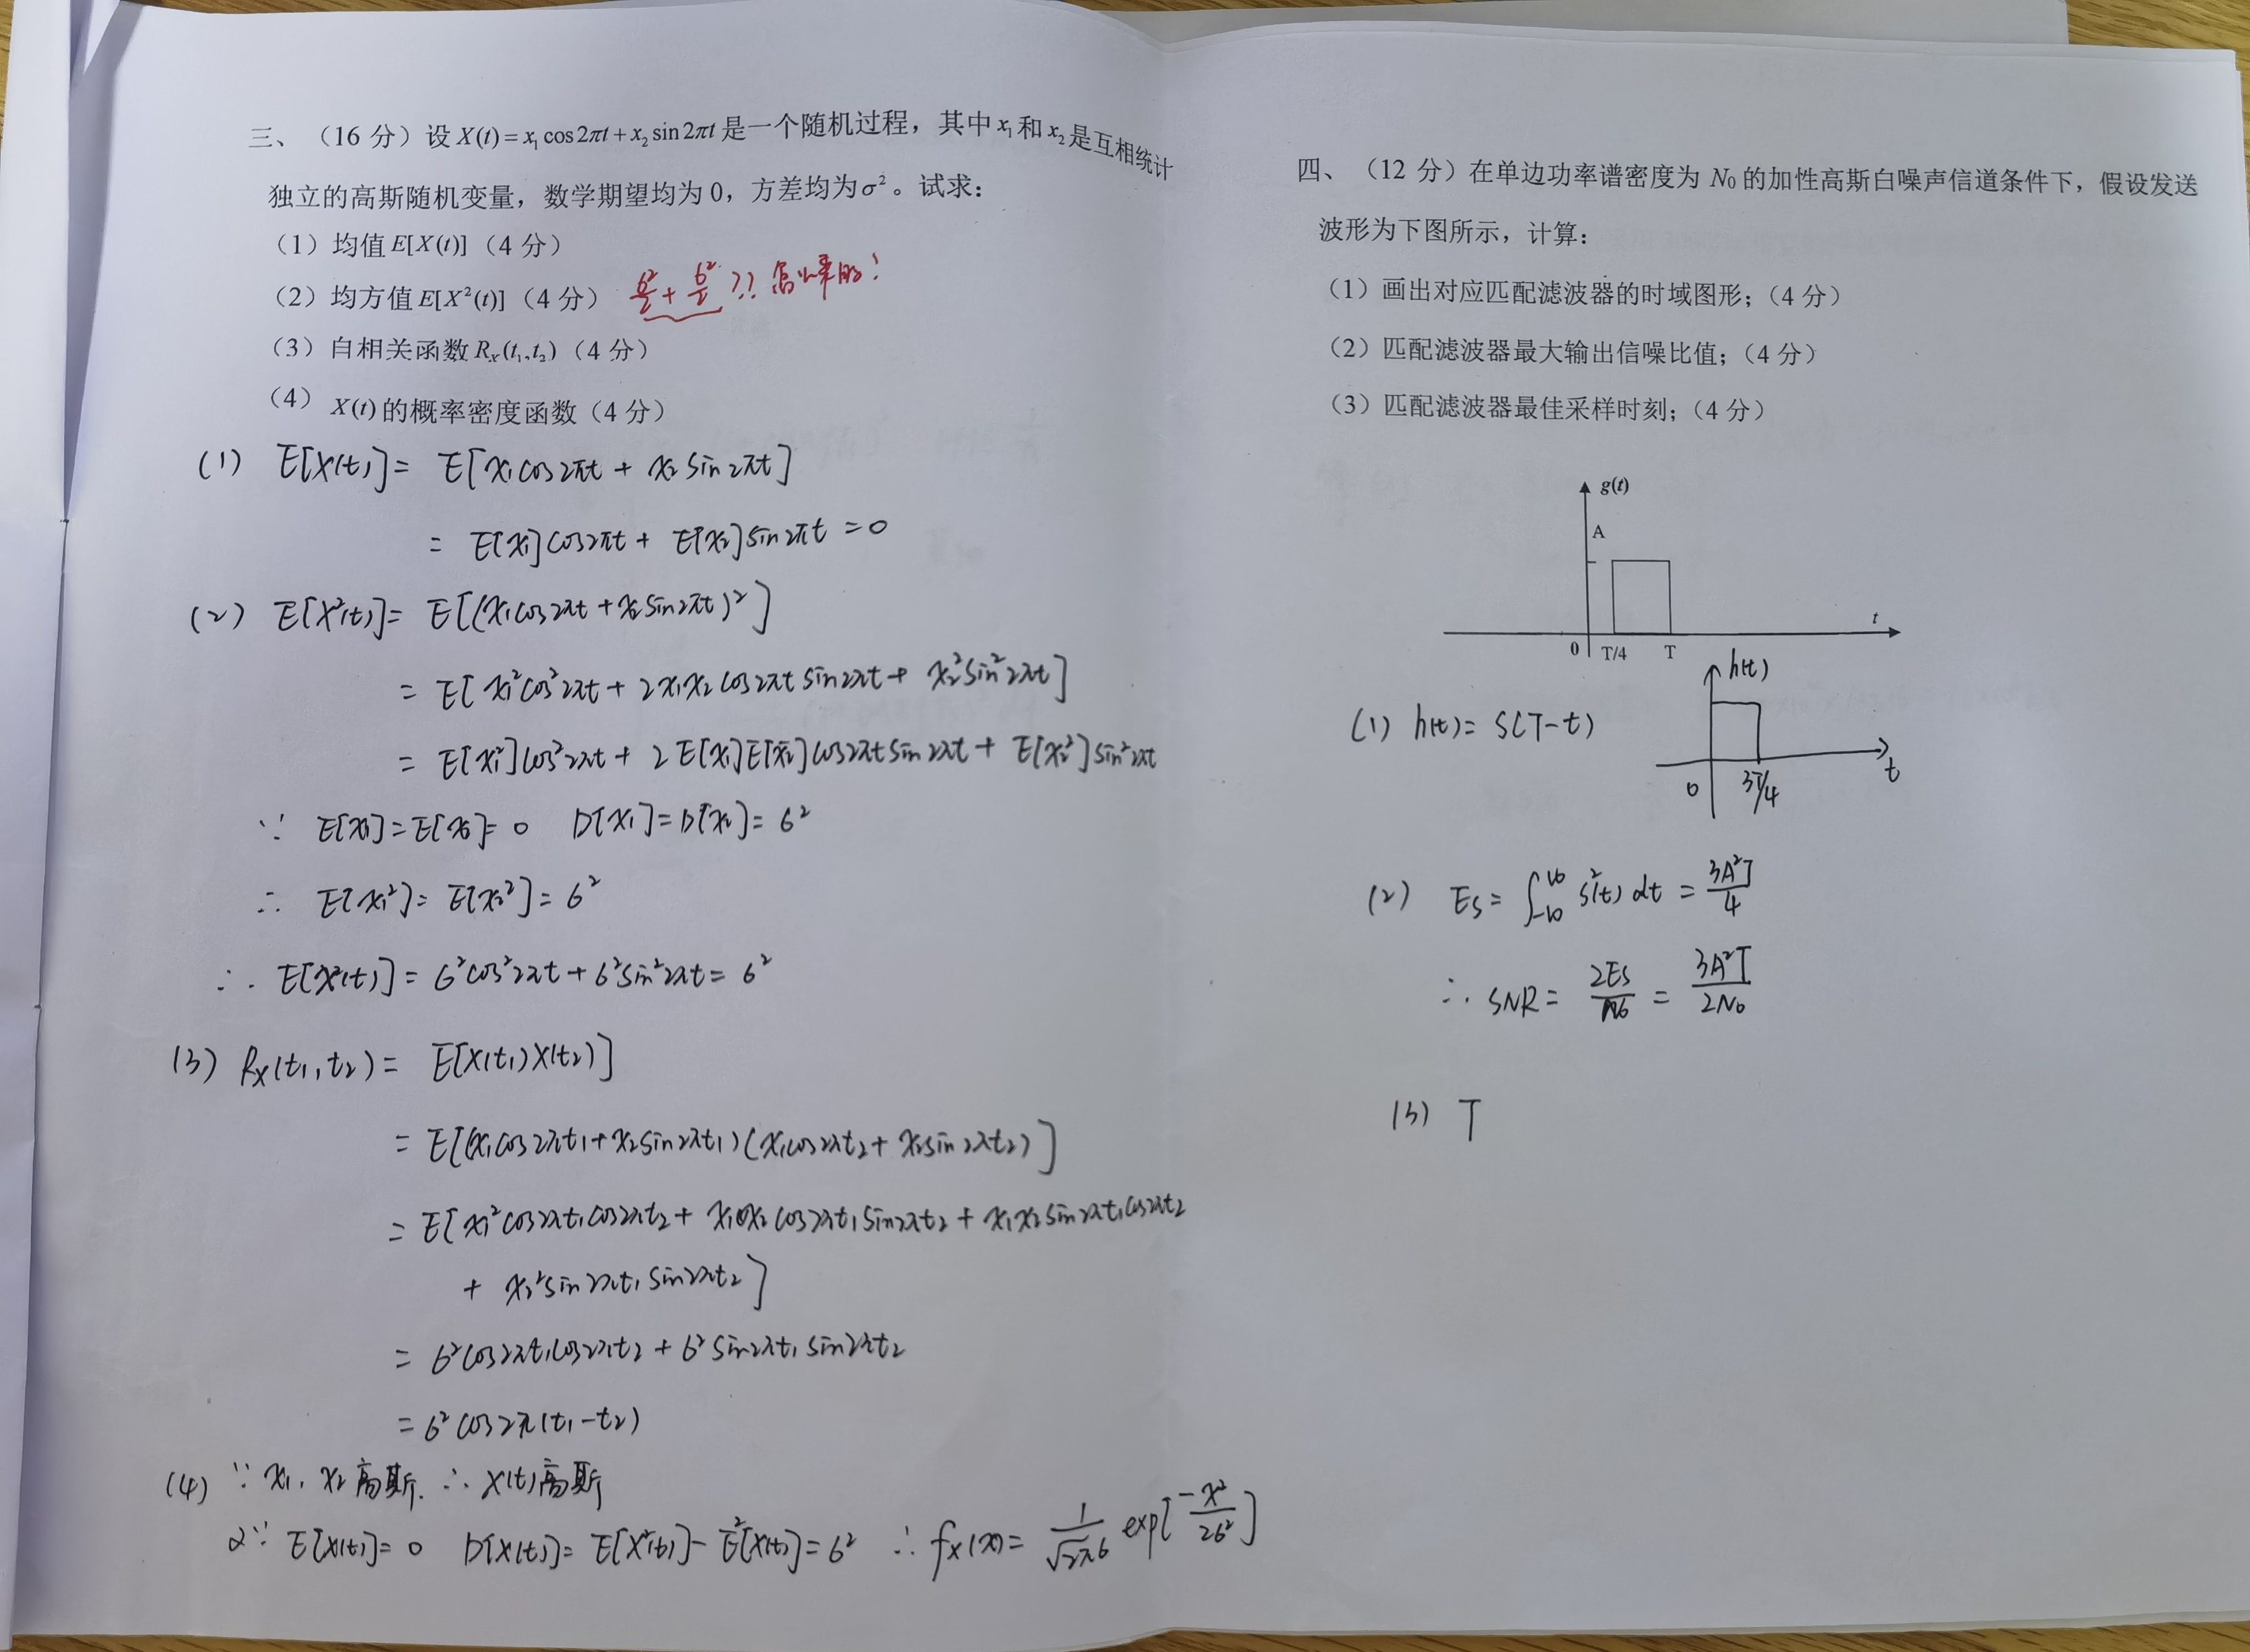 三、（16 分）设 X(t)=x₁cos2πt+x₂sin2πt 是一个随机过程，其中 x₁ 和 x₂ 是互相统计
独立的高斯随机变量，数学期望均为 0，方差均为σ²。试求：
（1）均值 E[X(t)]（4 分）
（2）均方值 E[X²(t)]（4 分） σ²/2 + σ²/2 ?? 怎么来的?
（3）自相关函数 Rx(t₁,t₂)（4 分）
（4） X(t) 的概率密度函数（4 分）
(1) E[X(t)] = E[x₁cos2πt + x₂sin2πt]
= E[x₁]cos2πt + E[x₂]sin2πt = 0
(2) E[X²(t)] = E[(x₁cos2πt + x₂sin2πt)²]
= E[x₁²cos²2πt + 2x₁x₂cos2πt sin2πt + x₂²sin²2πt]
= E[x₁²]cos²2πt + 2E[x₁]E[x₂]cos2πt sin2πt + E[x₂²]sin²2πt
∵ E[x₁]=E[x₂]=0 D[x₁]=D[x₂]=σ²
∴ E[x₁²]=E[x₂²]=σ²
∴ E[X²(t)] = σ²cos²2πt + σ²sin²2πt = σ²
(3) Rx(t₁,t₂) = E[X(t₁)X(t₂)]
= E[(x₁cos2πt₁+x₂sin2πt₁)(x₁cos2πt₂+x₂sin2πt₂)]
= E[x₁²cos2πt₁cos2πt₂ + x₁x₂cos2πt₁sin2πt₂ + x₁x₂sin2πt₁cos2πt₂
+ x₂²sin2πt₁sin2πt₂]
= σ²cos2πt₁cos2πt₂ + σ²sin2πt₁sin2πt₂
= σ²cos2π(t₁-t₂)
(4) ∵ x₁, x₂高斯. ∴ X(t)高斯
又∵ E[X(t)]=0 D[X(t)]=E[X²(t)]-E²[X(t)]=σ² ∴ fx(x)= 1/√2πσ exp[-x²/2σ²]
四、（12 分）在单边功率谱密度为 N₀ 的加性高斯白噪声信道条件下，假设发送
波形为下图所示，计算：
（1）画出对应匹配滤波器的时域图形；（4 分）
（2）匹配滤波器最大输出信噪比值；（4 分）
（3）匹配滤波器最佳采样时刻；（4 分）
g(t)
A
t
0 T/4 T
(1) h(t) = S(T-t)
h(t)
0 3T/4 t
(2) Es = ∫_{-∞}^{∞} s²(t) dt = 3A²T/4
∴ SNR = 2Es/N₀ = 3A²T/2N₀
(3) T